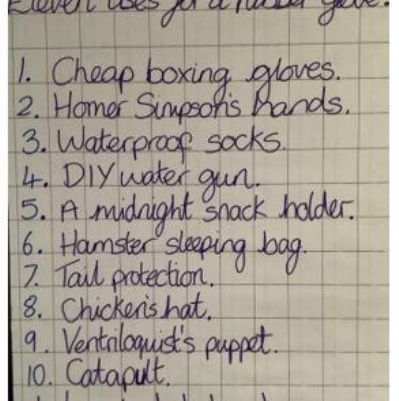 Eleven uses for a rubber glove.
1. Cheap boxing gloves.
2. Homer Simpson's hands.
3. Waterproof socks.
4. DIY water gun.
5. A midnight snack holder.
6. Hamster sleeping bag.
7. Tail protection.
8. Chicken's hat.
9. Ventriloquist's puppet.
10. Catapult.